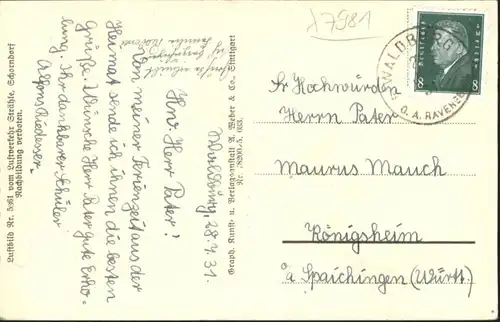 λ7981
Waldburg, 28.4.31.
Hw. Herr Pater!
Von meiner Ferienzeit aus der
Heimat sende ich ihnen die besten
Grüße. Wünsche Herr Pater gute Erho-
lung. Ihr dankbarer Schüler
Alfons Riedesser.
Luftbild Nr. 5361 vom Luftverkehr Strähle, Schorndorf
Nachbildung verboten.
Graph. Kunst- u. Verlagsanstalt A. Weber & Co., Stuttgart
WALDBURG
O. A. RAVENSB
8 8
Sr Hochwürden
Herrn Pater
Maurus Mauch
Königsheim
o/a Spaichingen (Württ.)